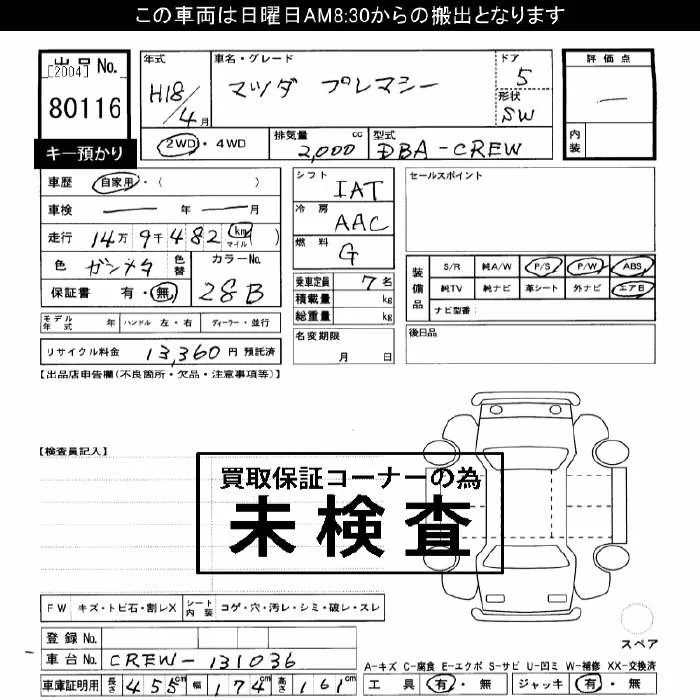 この車両は日曜日AM8:30からの搬出となります
出品No.
[2004]
80116
キー預かり
年式
H18/4月
車名・グレード
マツダ プレマシー
ドア
5
形状
SW
評価点
—
内装
2WD・4WD
排気量 cc
2,000
型式
DBA-CREW
車歴 自家用・( )
車検 年 月
走行 14万9千482 km マイル ( )
色 ガンメタ 色替
カラーNo.
28B
保証書 有・無
モデル年式 年 ハンドル 左・右 ディーラー・並行
リサイクル料金 13,360円 預託済
シフト
IAT
冷房
AAC
燃料
G
乗車定員 7名
積載量 kg
総重量 kg
名変期限
月 日
セールスポイント
装備品
S/R 純A/W P/S P/W ABS
純TV 純ナビ 革シート 外ナビ エアB
ナビ型番:
後日品
【出品店申告欄(不良箇所・欠品・注意事項等)】
【検査員記入】
買取保証コーナーの為
未検査
FW キズ・トビ石・割レX シート内装 コゲ・穴・汚レ・シミ・破レ・スレ
登録No.
車台No. CREW-131036
車庫証明用 長さ 455cm 幅 174cm 高さ 161cm
スペア
A-キズ C-腐食 E-エクボ S-サビ U-凹ミ W-補修 XX-交換済
工具 有・無 ジャッキ 有・無